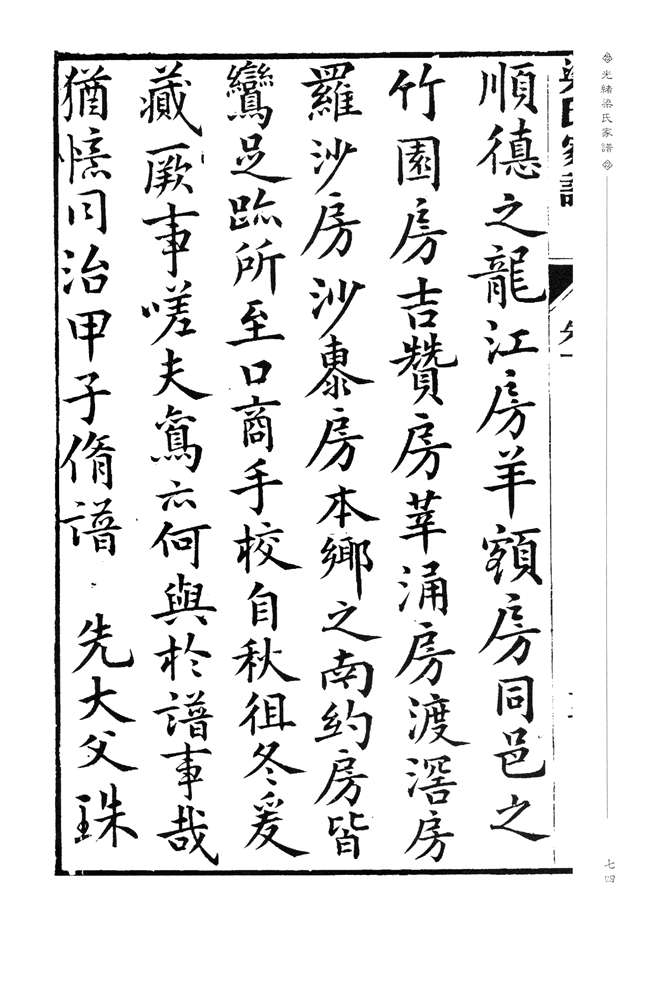 光緒梁氏家譜
七四
順德之龍江房羊額房同邑之
竹園房吉贊房莘涌房渡滘房
羅沙房沙㯼房本鄉之南約房皆
鸞足跡所至口商手校自秋徂冬爰
蕆厥事嗟夫鸞亦何與於譜事哉
猶憶同治甲子脩譜 先大父珠